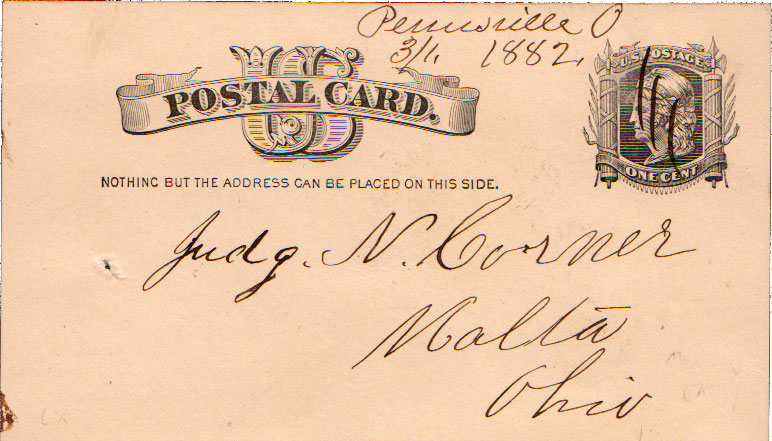 Pennsville O
3/1. 1882.
U.S. POSTAGE
US
POSTAL CARD.
ONE CENT
NOTHING BUT THE ADDRESS CAN BE PLACED ON THIS SIDE.
Judg. N. Corner
Malta
Ohio